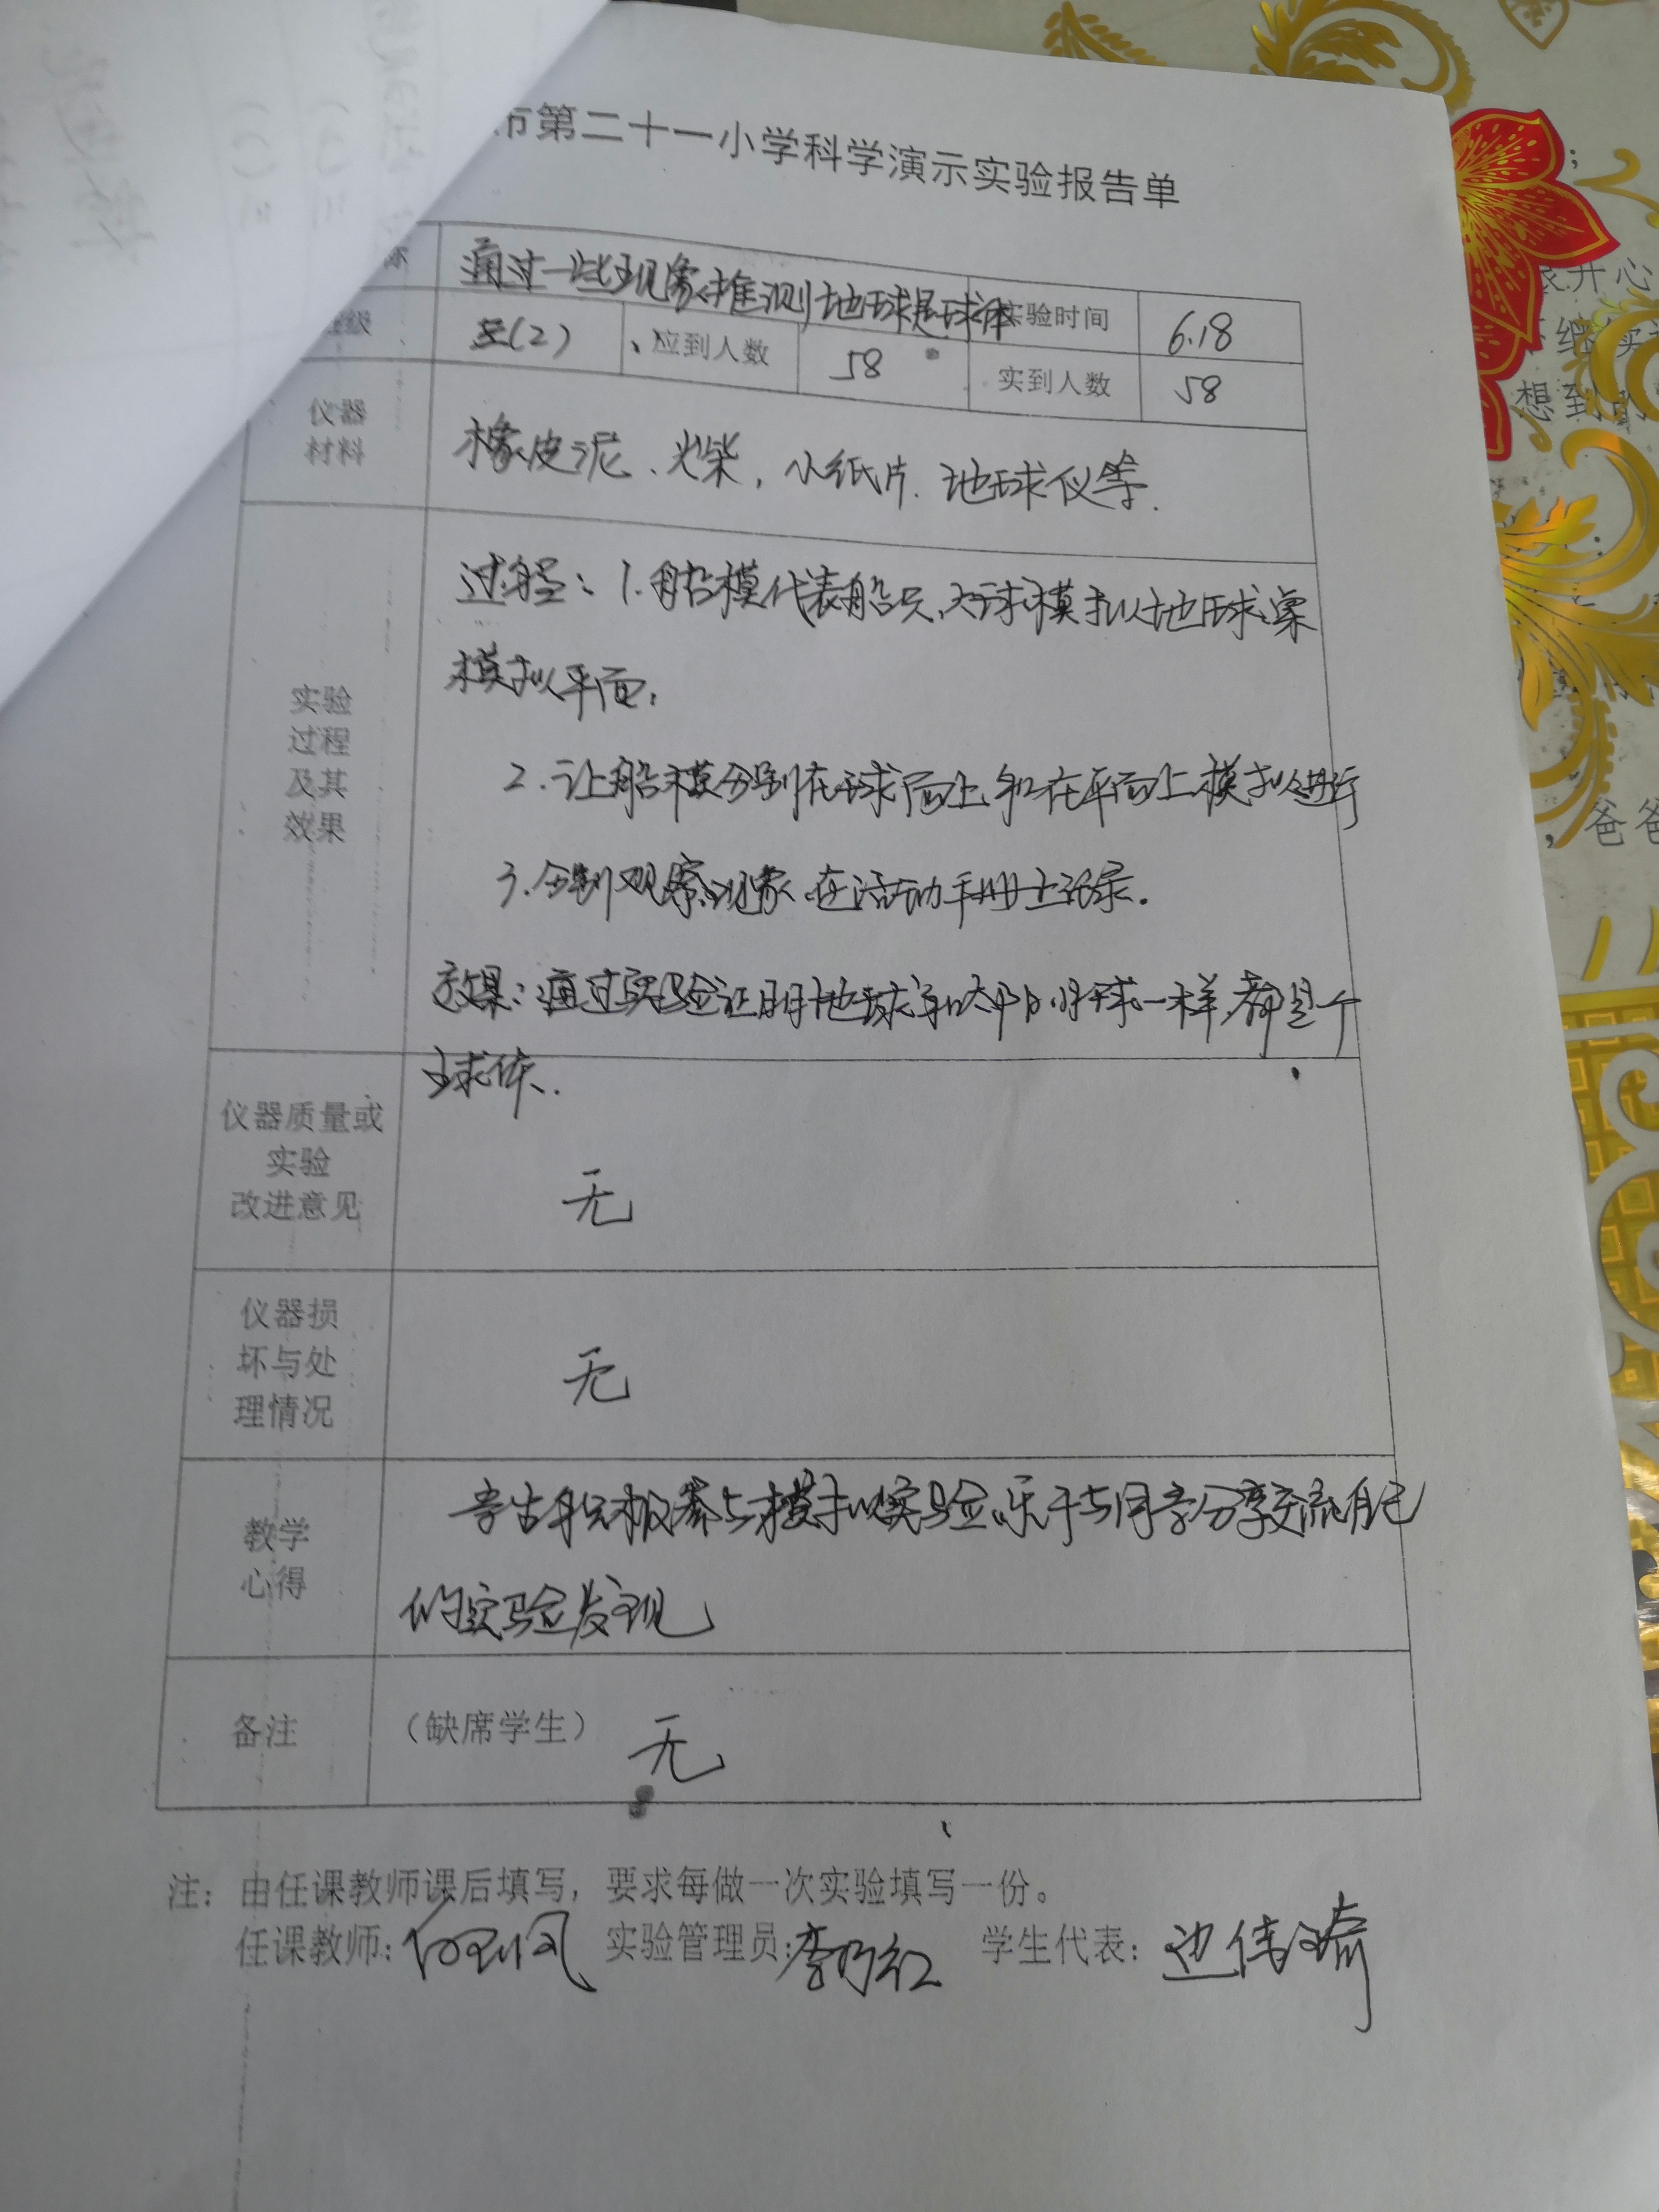 市第二十一小学科学演示实验报告单
称 通过一些现象推测地球是球体 实验时间 6.18
级 三(2) 应到人数 58 实到人数 58
仪器
材料
橡皮泥、火柴，小纸片、地球仪等.
实验
过程
及其
效果
过程：1.船模代表船只、球模拟地球，桌
模拟平面，
2.让船模分别在球面上和在平面上模拟进行
3.分别观察现象，在活动手册上记录.
效果：通过实验证明地球和月球一样，都是个
球体.
仪器质量或
实验
改进意见
无
仪器损
坏与处
理情况
无
教学
心得
积极参与模拟实验，乐于与同学分享交流自己
的实验发现
备注 (缺席学生) 无
注：由任课教师课后填写，要求每做一次实验填写一份。
任课教师： 实验管理员：李乃红 学生代表：边倩
开心
继续
想到的
，爸爸